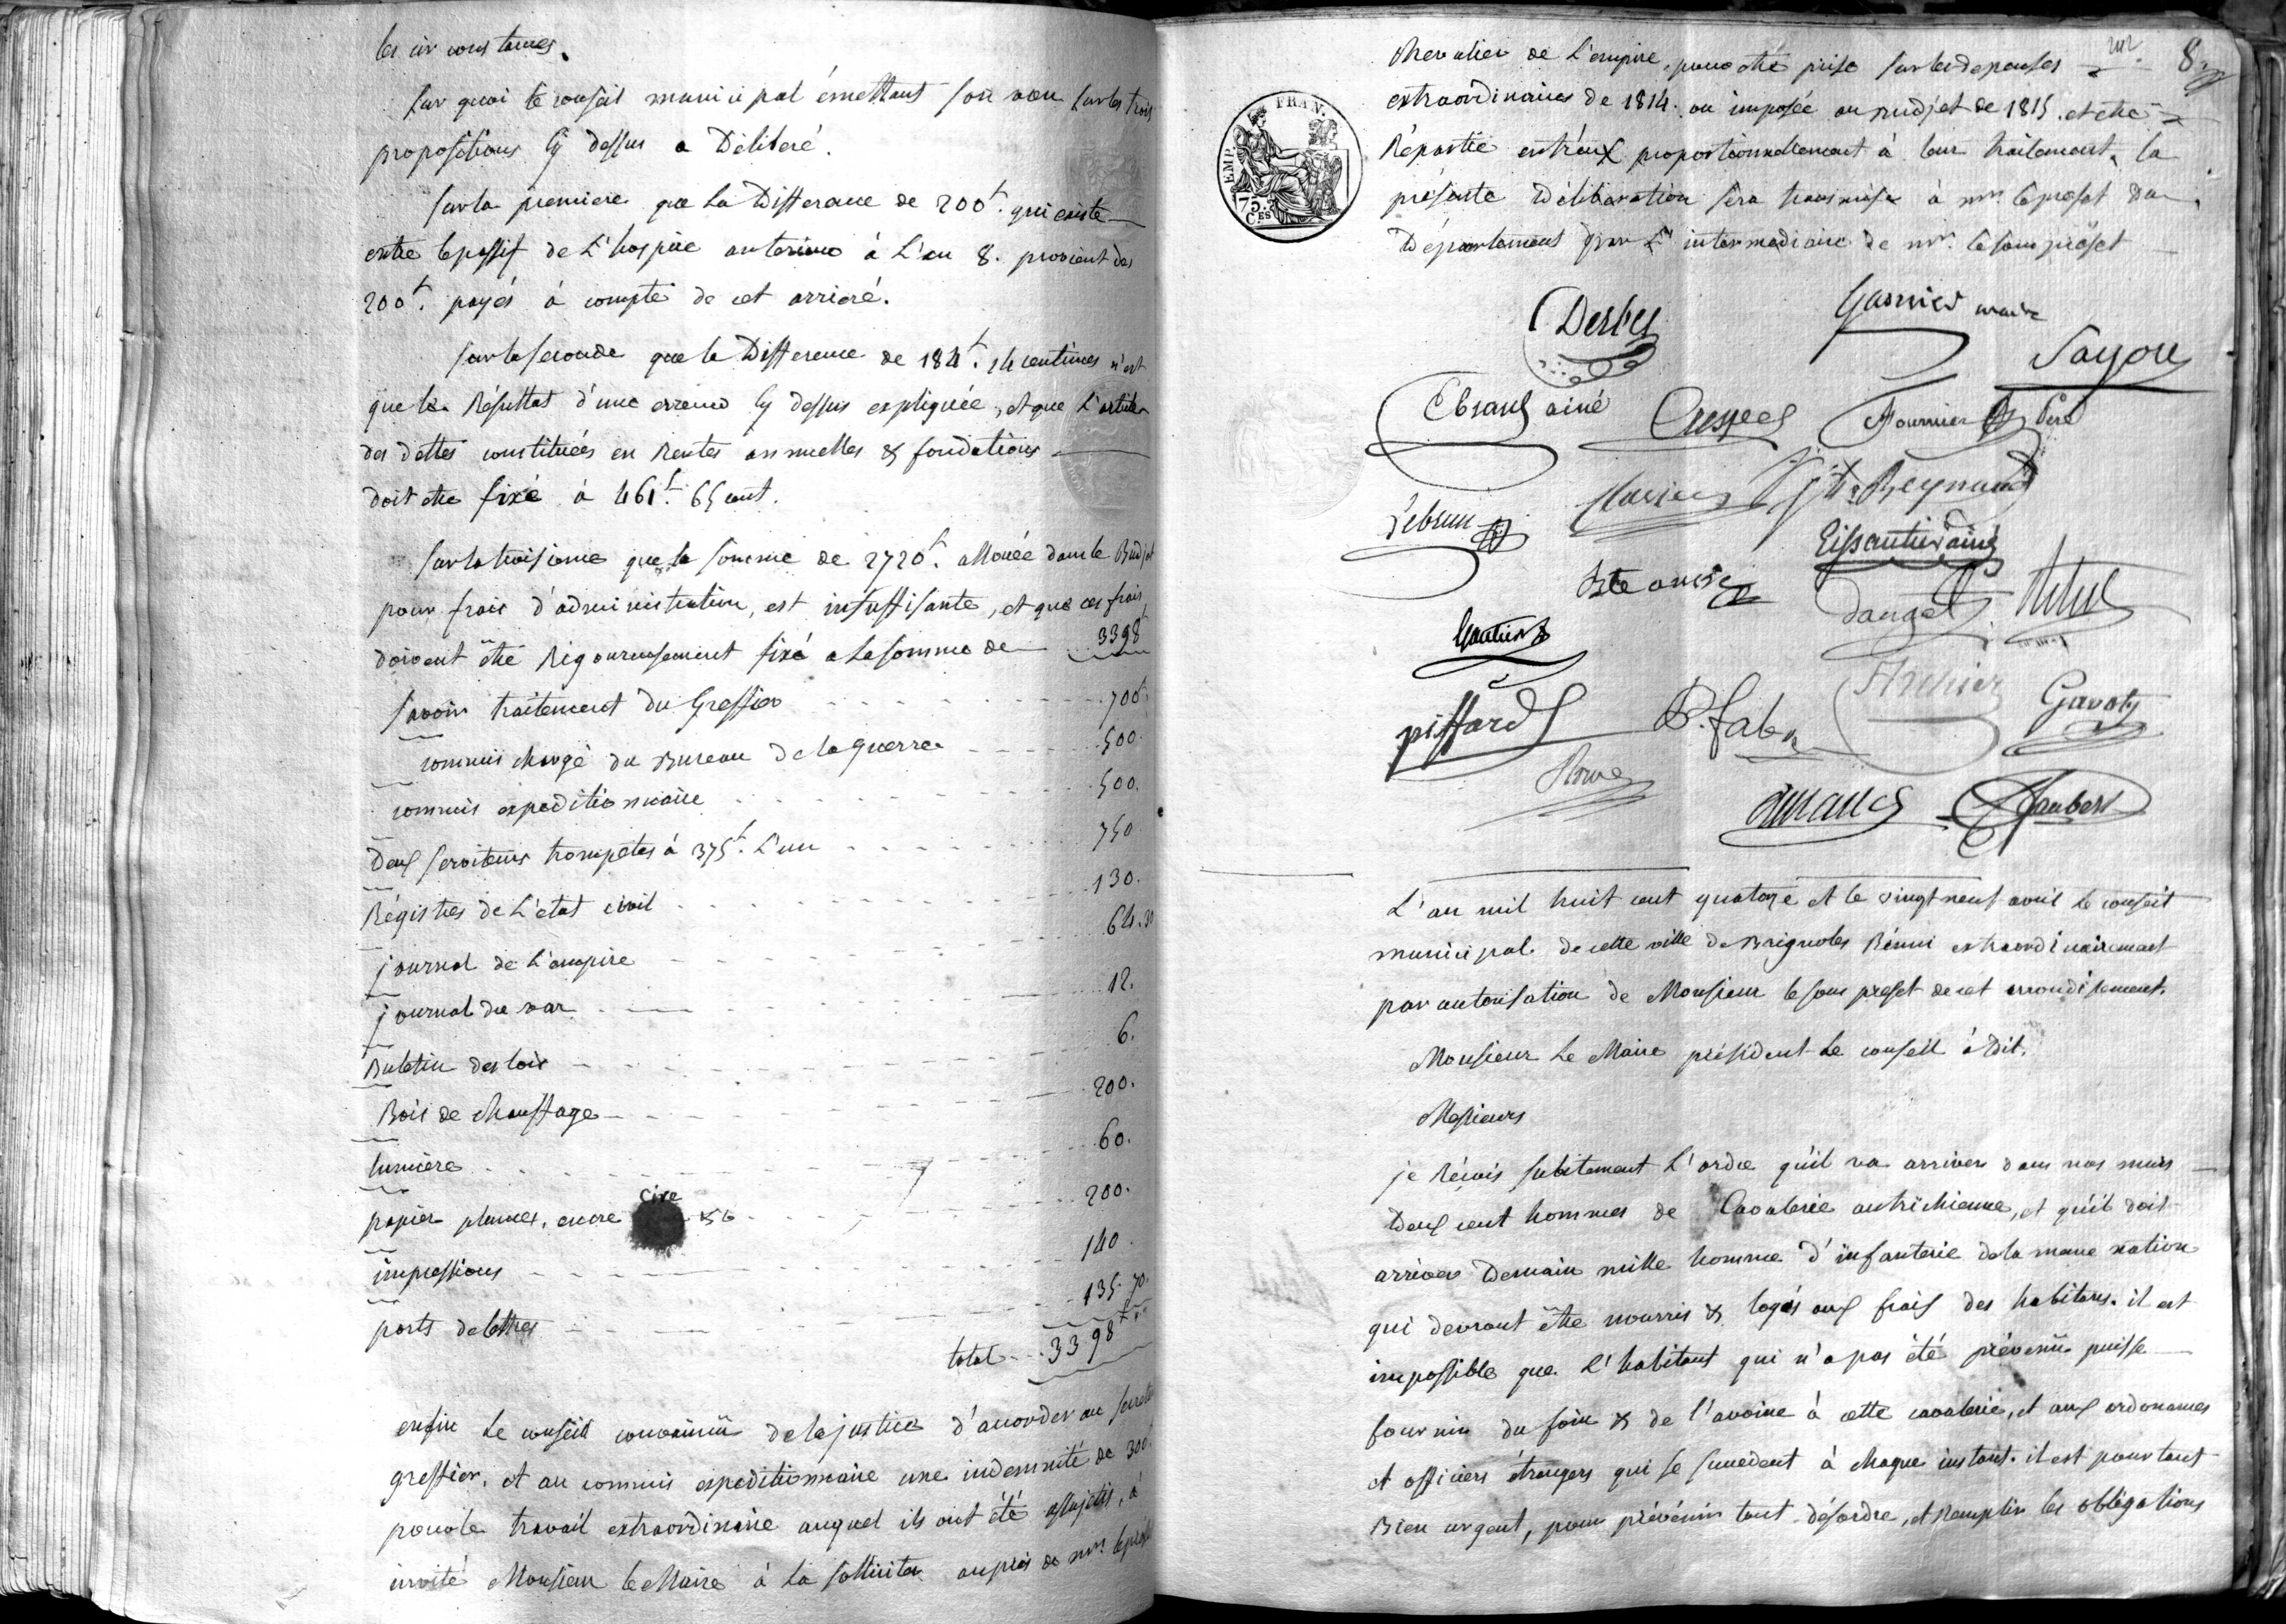 les circonstances.
Sur quoi le conseil municipal émettant son vœu sur les trois
propositions cy dessus a Délibéré.
Sur la premiere que la Differance de 200f. qui existe
entre le passif de L'hospice anterieur à L'an 8. provient des
200f. payés à compte de cet arrieré.
Sur la seconde que la Difference de 184f. 14 centimes n'est
que le Résultat d'une erreur cy dessus expliquée, et que L'article
des dettes constituées en Rentes annuelles & fondations
doit etre fixé à 461f. 65 cent.
Sur la troisieme que la somme de 2720f. allouée dans le Budjet
pour frais d'administration, est insuffisante, et que ces frais
doivent être Rigoureusement fixé a la somme de 3398f
Savoir traitement du Greffier 700f
commis chargé du Bureau de la guerre 500.
commis expeditionnaire 500.
Deux serviteurs trompetes à 375f. L'un 750
Régistres de L'etat civil 130.
journal de L'empire 64.30
journal du var 12.
Buletin des lois 6.
Bois de chauffage 200.
lumiere 60.
papier plumes, encre cire 200.
impressions 140.
ports de lettres 135.70.
total 3398f
enfin Le conseil convaincu de la justice d'accorder au
greffier, et au commis expeditionnaire une indemnité de 300f.
pour le travail extraordinaire auquel ils ont été assujetis, a
invité Monsieur le Maire à La solliciter auprès de mr. le
8.
chevalier de L'empire, pour etre prise sur les depenses
extraordinaires de 1814. ou imposée au Budjet de 1815. et etre
Répartie entr'eux proportionnellement à leur traitement, la
présente Délibération sera transmise à mr. le prefet du
Département par L'intermediaire de mr. le sous préfet
EMP. FRAN.
75. CES
Desbes
Garnier maire
Sayou
Ebrard ainé
Crespel
Fournier Père
Lebrun
Reynaud
Eissautier ainé
Gautier
Dauzet
piffard
B. fabre
Archier
Gavoty
Jaubert
L'an mil huit cent quatorze et le vingt neuf avril le conseil
municipal de cette ville de Brignoles Réuni extraordinairement
par autorisation de Monsieur le sous prefet de cet arrondissement.
Monsieur Le Maire président Le conseil à Dit.
Messieurs
je Réçois subitement L'ordre qu'il va arriver dans nos murs
Deux cent hommes de Cavalerie autrichienne, et qu'il doit
arriver Demain mille homme d'infanterie de la meme nation
qui devront être nourris & logés aux frais des habitans. il est
impossible que L'habitant qui n'a pas été prévenu puisse
fournir du foin & de l'avoine à cette cavalerie, et aux ordonances
et officiers étrangers qui se succedent à chaque instant. il est pourtant
Bien urgent, pour prévenir tout désordre, et Remplir les obligations